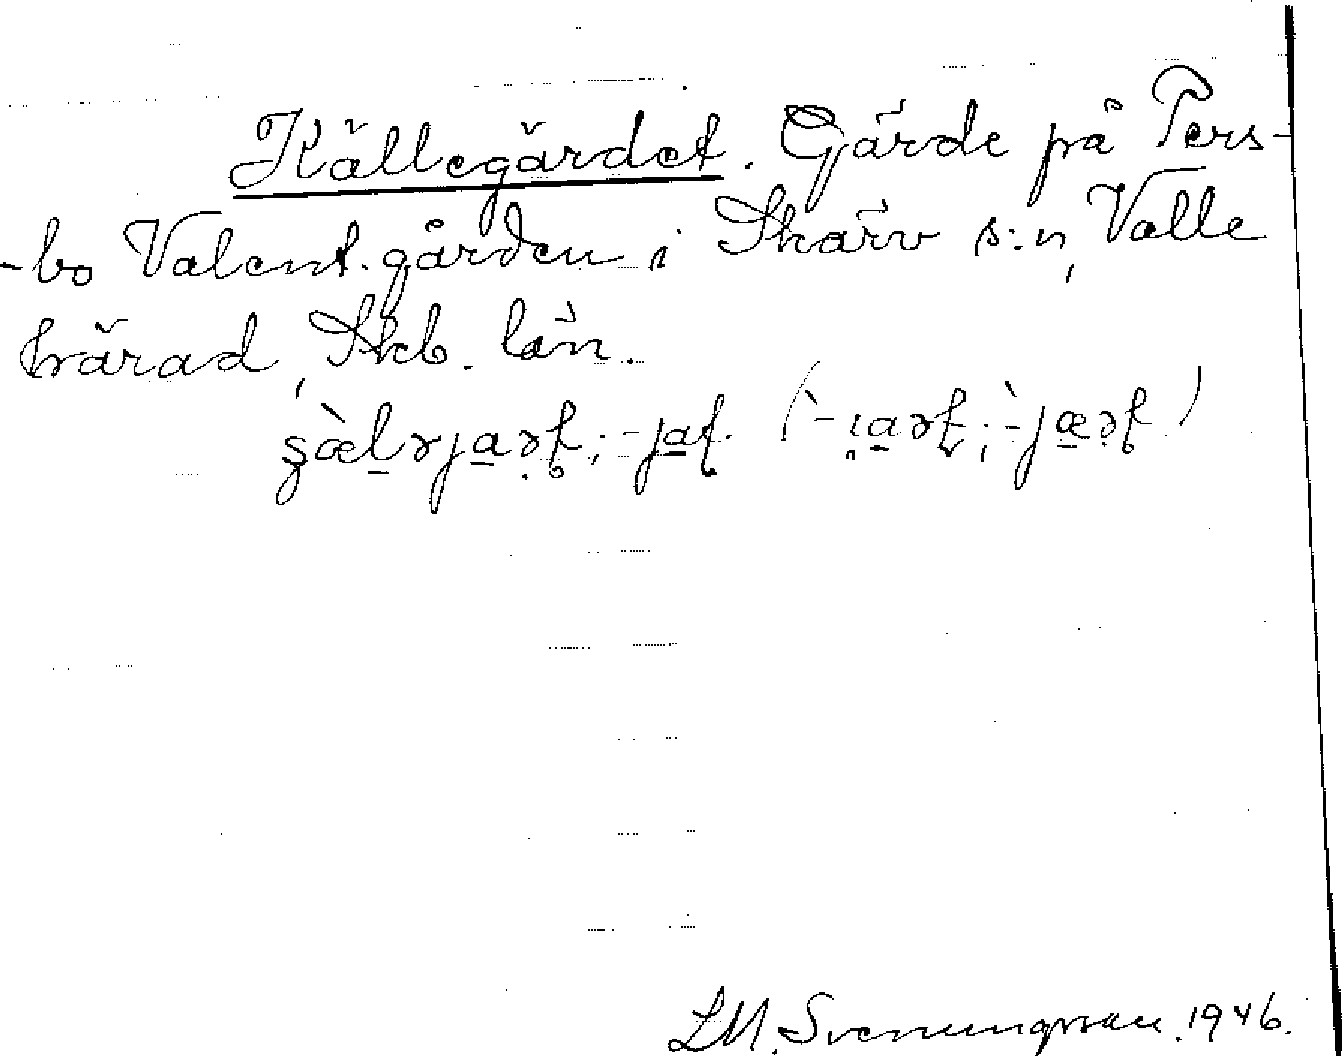 Källegärdet. Gärde på Pers-
-bo Valent. gården i Skärv s:n, Valle
härad, Skb. län.
L M. Svenungsson. 1946.